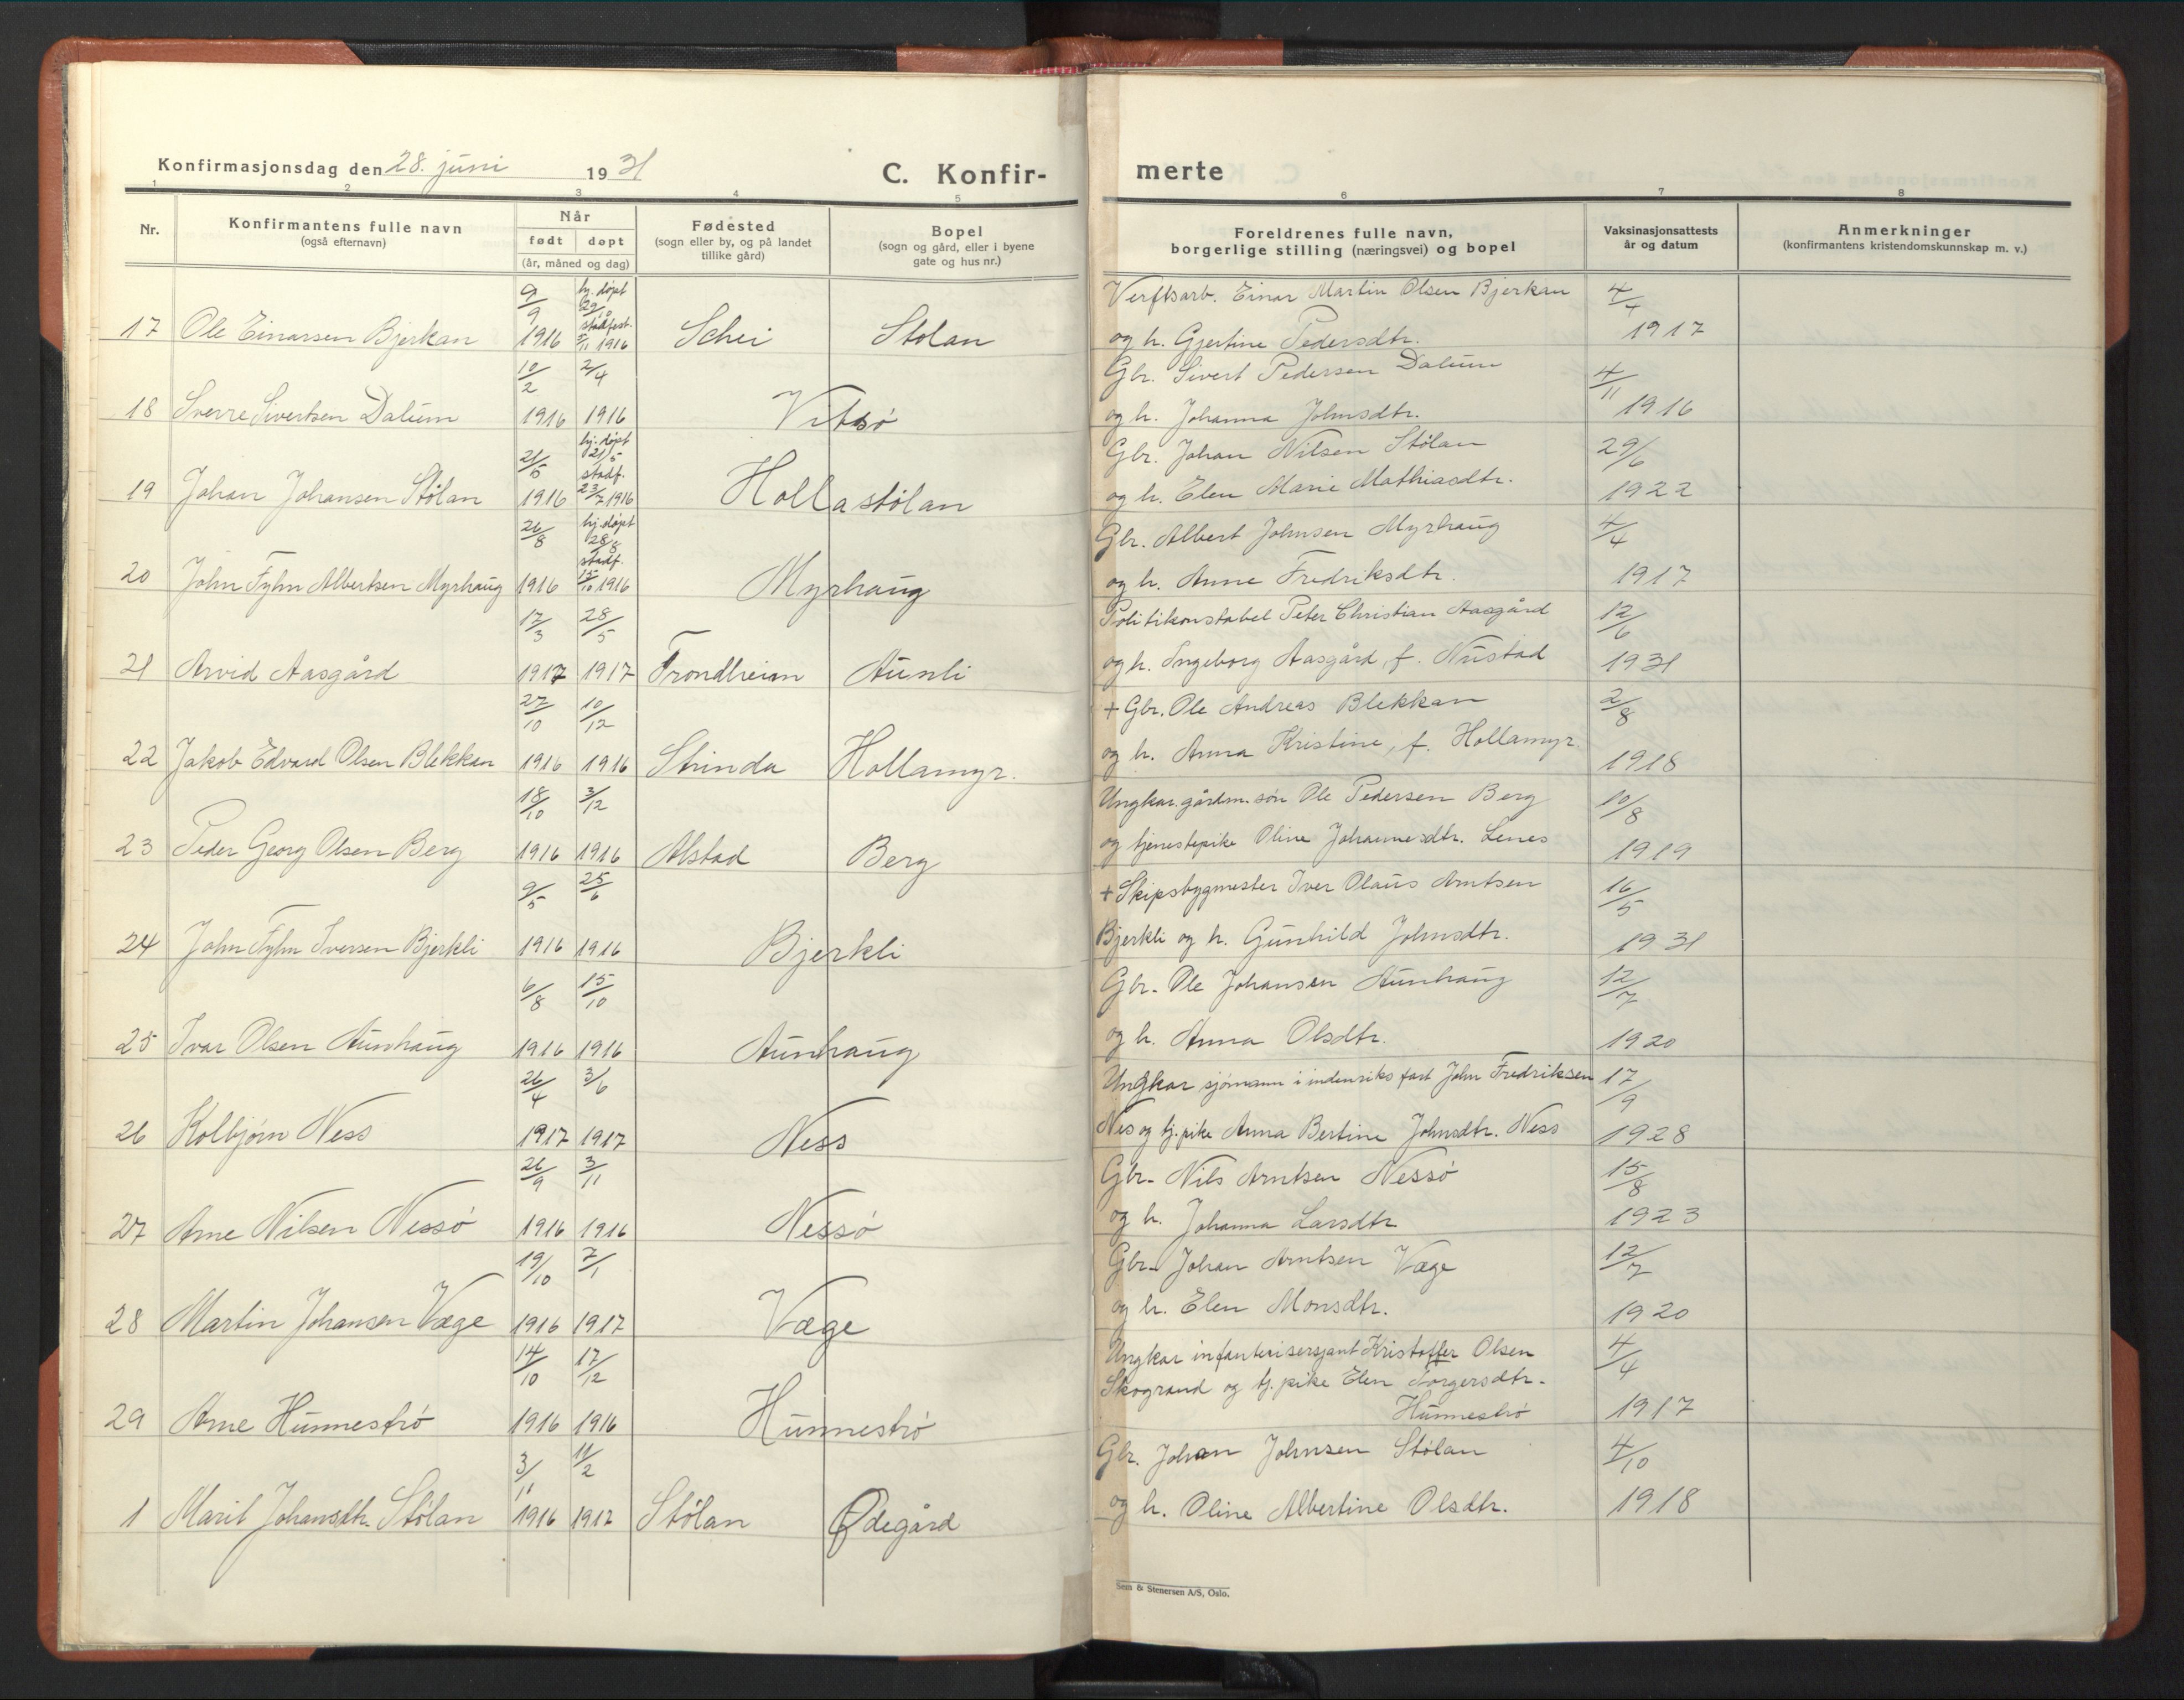 Konfirmasjonsdag den 28. juni 1931
C. Konfir-
merte
1 2 3 4 5 6 7 8
Nr.
Konfirmantens fulle navn
(også efternavn)
Når
født døpt
(år, måned og dag)
Fødested
(sogn eller by, og på landet
tillike gård)
Bopel
(sogn og gård, eller i byene
gate og hus nr.)
Foreldrenes fulle navn,
borgerlige stilling (næringsvei) og bopel
Vaksinasjonsattests
år og datum
Anmerkninger
(konfirmantens kristendomskunnskap m. v.)
9/9 hj. døpt 29/10 Verftsarb. Einar Martin Olsen Bjerkan 4/4
17 Ole Einarsen Bjerkan 1916 stadfest. 5/11 1916 Schei Stolan og h. Gjertine Pedersdtr. 1917
10/2 2/4 Gbr. Sivert Pedersen Dalum 4/11
18 Sverre Sivertsen Dalum 1916 1916 Vitsø og h. Johanna Johnsdtr. 1916
21/5 hj. døpt 21/5 Gbr. Johan Nilsen Stølan 29/6
19 Johan Johansen Stølan 1916 stadf. 23/7 1916 Hollastølan og h. Elen Marie Mathiasdtr. 1922
26/8 hj. døpt 28/8 Gbr. Albert Johnsen Myrhaug 4/4
20 John Fyhn Albertsen Myrhaug 1916 stadf. 15/10 1916 Myrhaug og h. Anne Fredriksdtr. 1917
17/3 28/5 Politikonstabel Peter Christian Aasgård 12/6
21 Arvid Aasgård 1917 1917 Trondheim Aunli og h. Ingeborg Aasgård, f. Nustad 1931
27/10 10/12 + Gbr. Ole Andreas Blekkan 2/8
22 Jakob Edvard Olsen Blekkan 1916 1916 Strinda Hollamyr. og h. Anna Kristine, f. Hollamyr. 1918
18/10 3/12 Ungkar. gårdm. søn Ole Pedersen Berg 10/8
23 Peder Georg Olsen Berg 1916 1916 Alstad Berg og tjenestepike Oline Johannesdtr. Lenes 1919
9/5 25/6 + Skipsbygmester Iver Olaus Arntsen 16/5
24 John Fyhn Iversen Bjerkli 1916 1916 Bjerkli Bjerkli og h. Gunhild Johnsdtr. 1931
6/8 15/10 Gbr. Ole Johansen Aunhaug 12/7
25 Ivar Olsen Aunhaug 1916 1916 Aunhaug og h. Anna Olsdtr. 1920
26/4 3/6 Ungkar sjømann i indenriks fart John Fredriksen 17/9
26 Kolbjørn Ness 1917 1917 Ness Nes og tj. pike Anna Bertine Johnsdtr. Ness 1928
26/9 3/11 Gbr. Nils Arntsen Nessø 15/8
27 Arne Nilsen Nessø 1916 1916 Nessø og h. Johanna Larsdtr 1923
19/10 7/1 Gbr. Johan Arntsen Væge 12/7
28 Martin Johansen Væge 1916 1917 Væge og h. Elen Monsdtr. 1920
14/10 17/12 Ungkar infanterisersjant Kristoffer Olsen 4/4
Skogrand og tj. pike Elen Torgersdtr.
29 Arne Hunnestrø 1916 1916 Hunnestrø Hunnestrø 1917
3/11 11/2 Gbr. Johan Johnsen Stølan 4/10
1 Marit Johansdtr. Stølan 1916 1917 Stølan Ødegård og h. Oline Albertine Olsdtr. 1918
Sem & Stenersen A/S, Oslo.